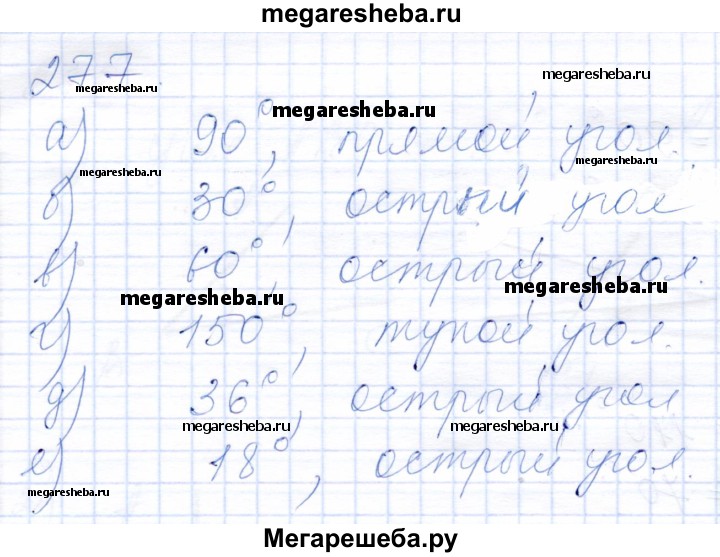 megaresheba.ru
277.
megaresheba.ru
megaresheba.ru
megaresheba.ru
а) 90°, прямой угол.
megaresheba.ru
megaresheba.ru
б) 30°, острый угол
в) 60°, острый угол.
megaresheba.ru
megaresheba.ru
г) 150°, тупой угол.
д) 36°, острый угол
megaresheba.ru
megaresheba.ru
е) 18°, острый угол.
megaresheba.ru
Мегарешеба.ру